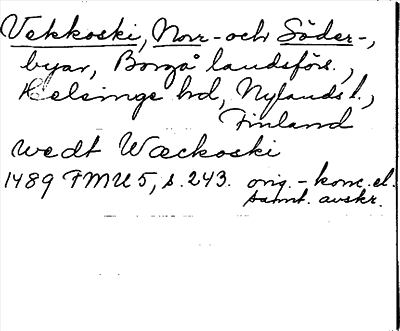 Vekkoski, Norr- och Söder-,
byar, Borgå landsförs.,
Helsinge hd, Nylands l.,
Finland
wedt Wæckoski
1489 FMU 5, s. 243. orig. - konc. el.
samt. avskr.